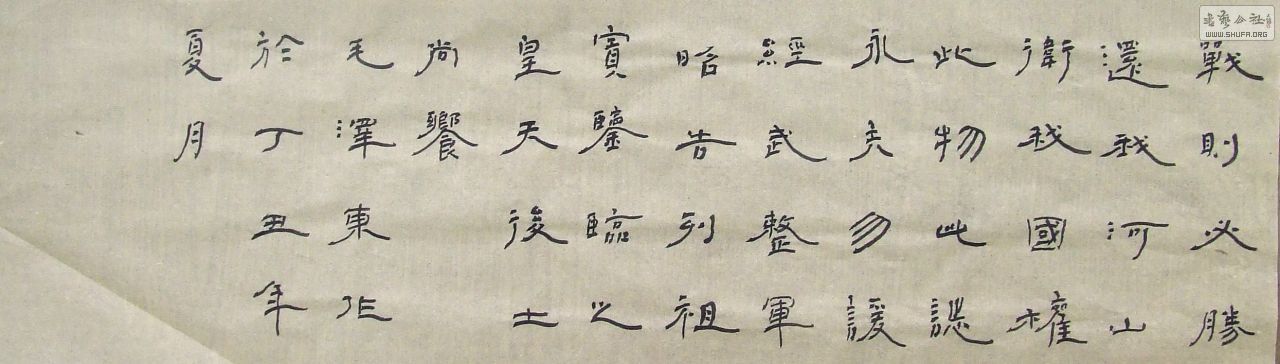 戰則必勝
還我河山
衛我國權
此物此誌
永矢勿諼
經武整軍
昭告列祖
實鑒臨之
皇天後土
尚饗
毛澤東作
於丁丑年
夏月
书藝公社
WWW.SHUFA.ORG